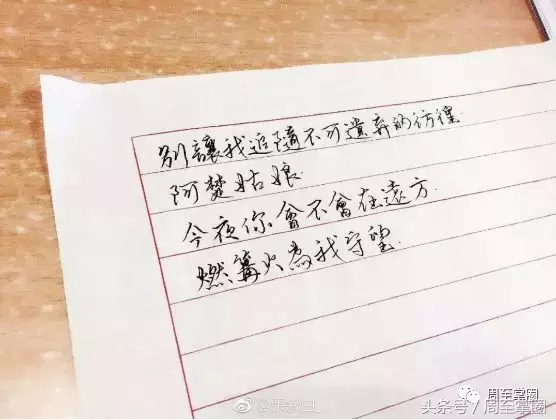 別讓我追隨不可遺棄的彷徨
阿楚姑娘
今夜你會不會在遠方
燃篝火為我守望
周至掌圈
头条号/周至掌圈